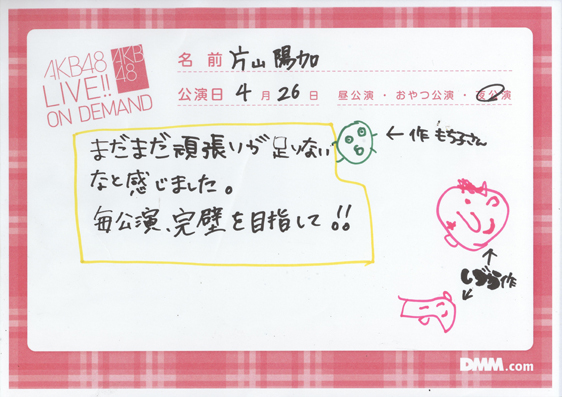 AKB48
LIVE!!
ON DEMAND
AKB
48
名前 片山陽加
公演日 4月26日 昼公演・おやつ公演・夜公演
まだまだ頑張りが足りない
なと感じました。
毎公演、完璧を目指して!!
← 作 もちろさん
しづら作
DMM.com